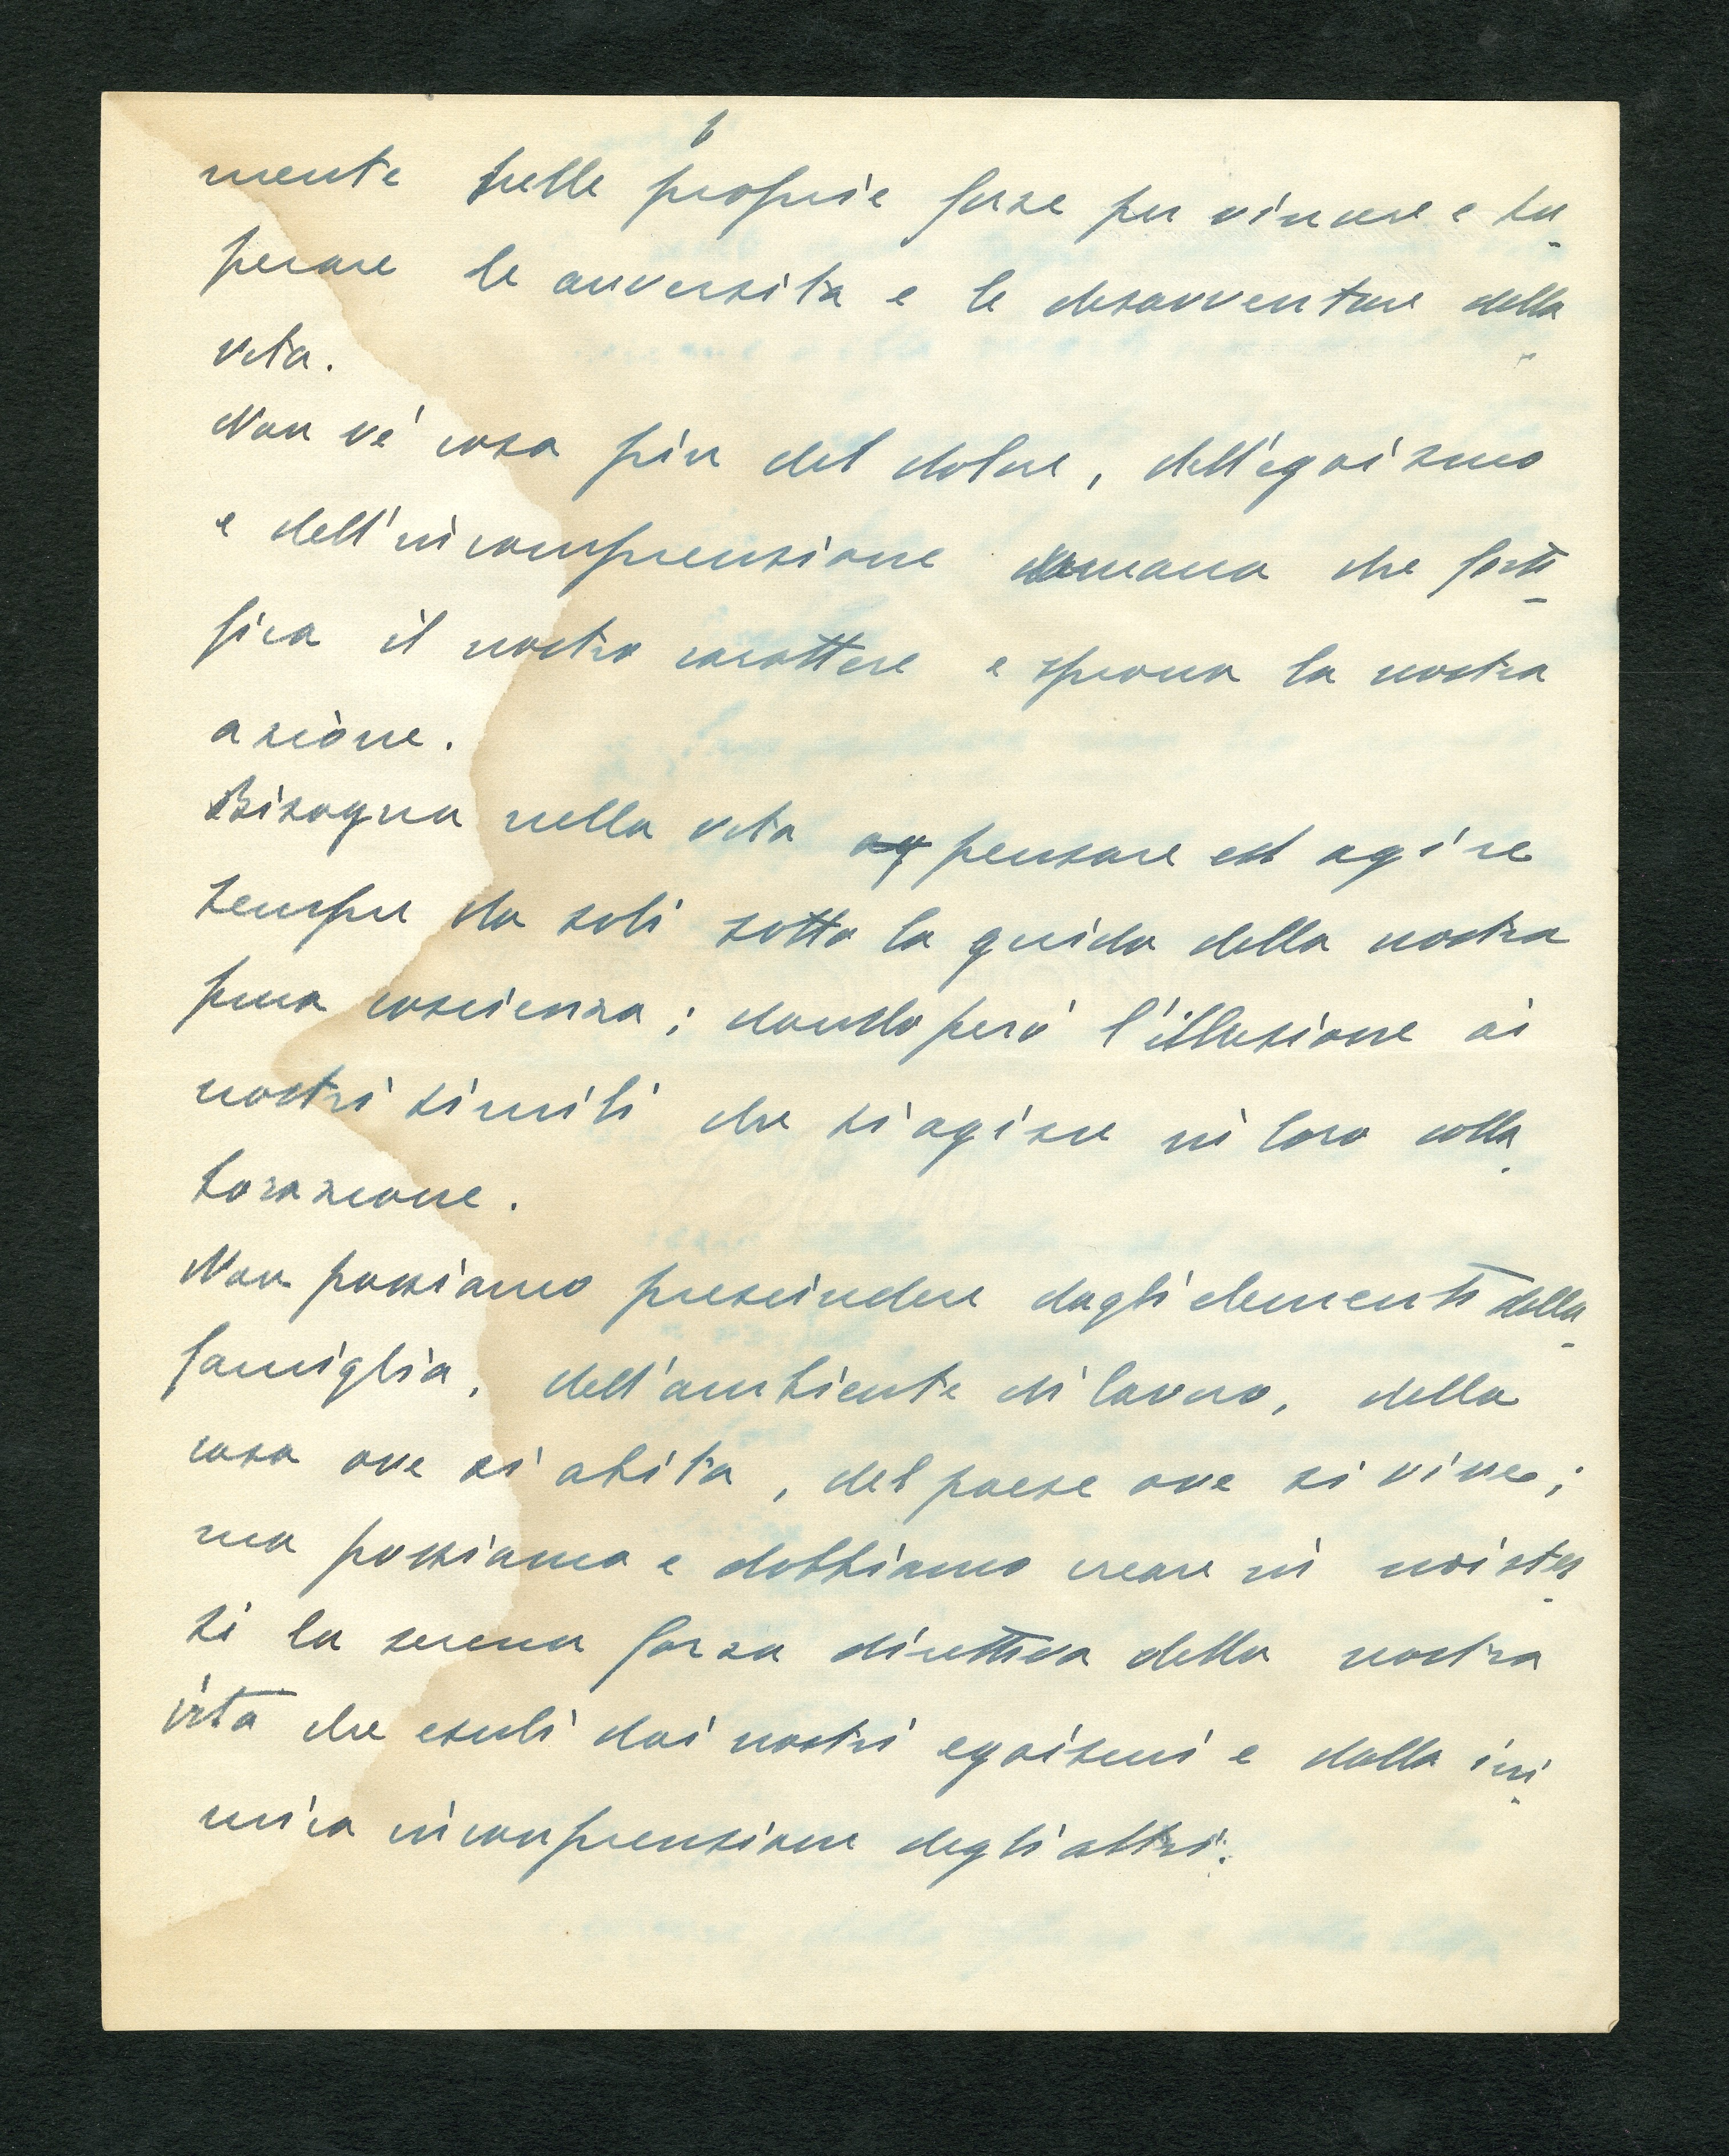 6
mente sulle proprie forze per vincere e su
perare le avversita e le disavventure della
vita.
Non v'é cosa piu del dolore, dell'egoismo
e dell'incomprensione umana che forti
fica il nostro carattere e sprona la nostra
azione.
Bisogna nella vita ag pensare ed agire
sempre da soli sotto la guida della nostra
pura coscienza; dando però l'illusione ai
nostri simili che si agisce in loro colla
borazione.
Non possiamo prescindere dagli elementi della
famiglia, dell'ambiente di lavoro, della
casa ove si abita, del paese ove si vive;
ma possiamo e dobbiamo creare in noi stes
si la serena forza direttiva della nostra
vita che esuli dai nostri egoismi e dalla ini
mica incomprensione degli altri.